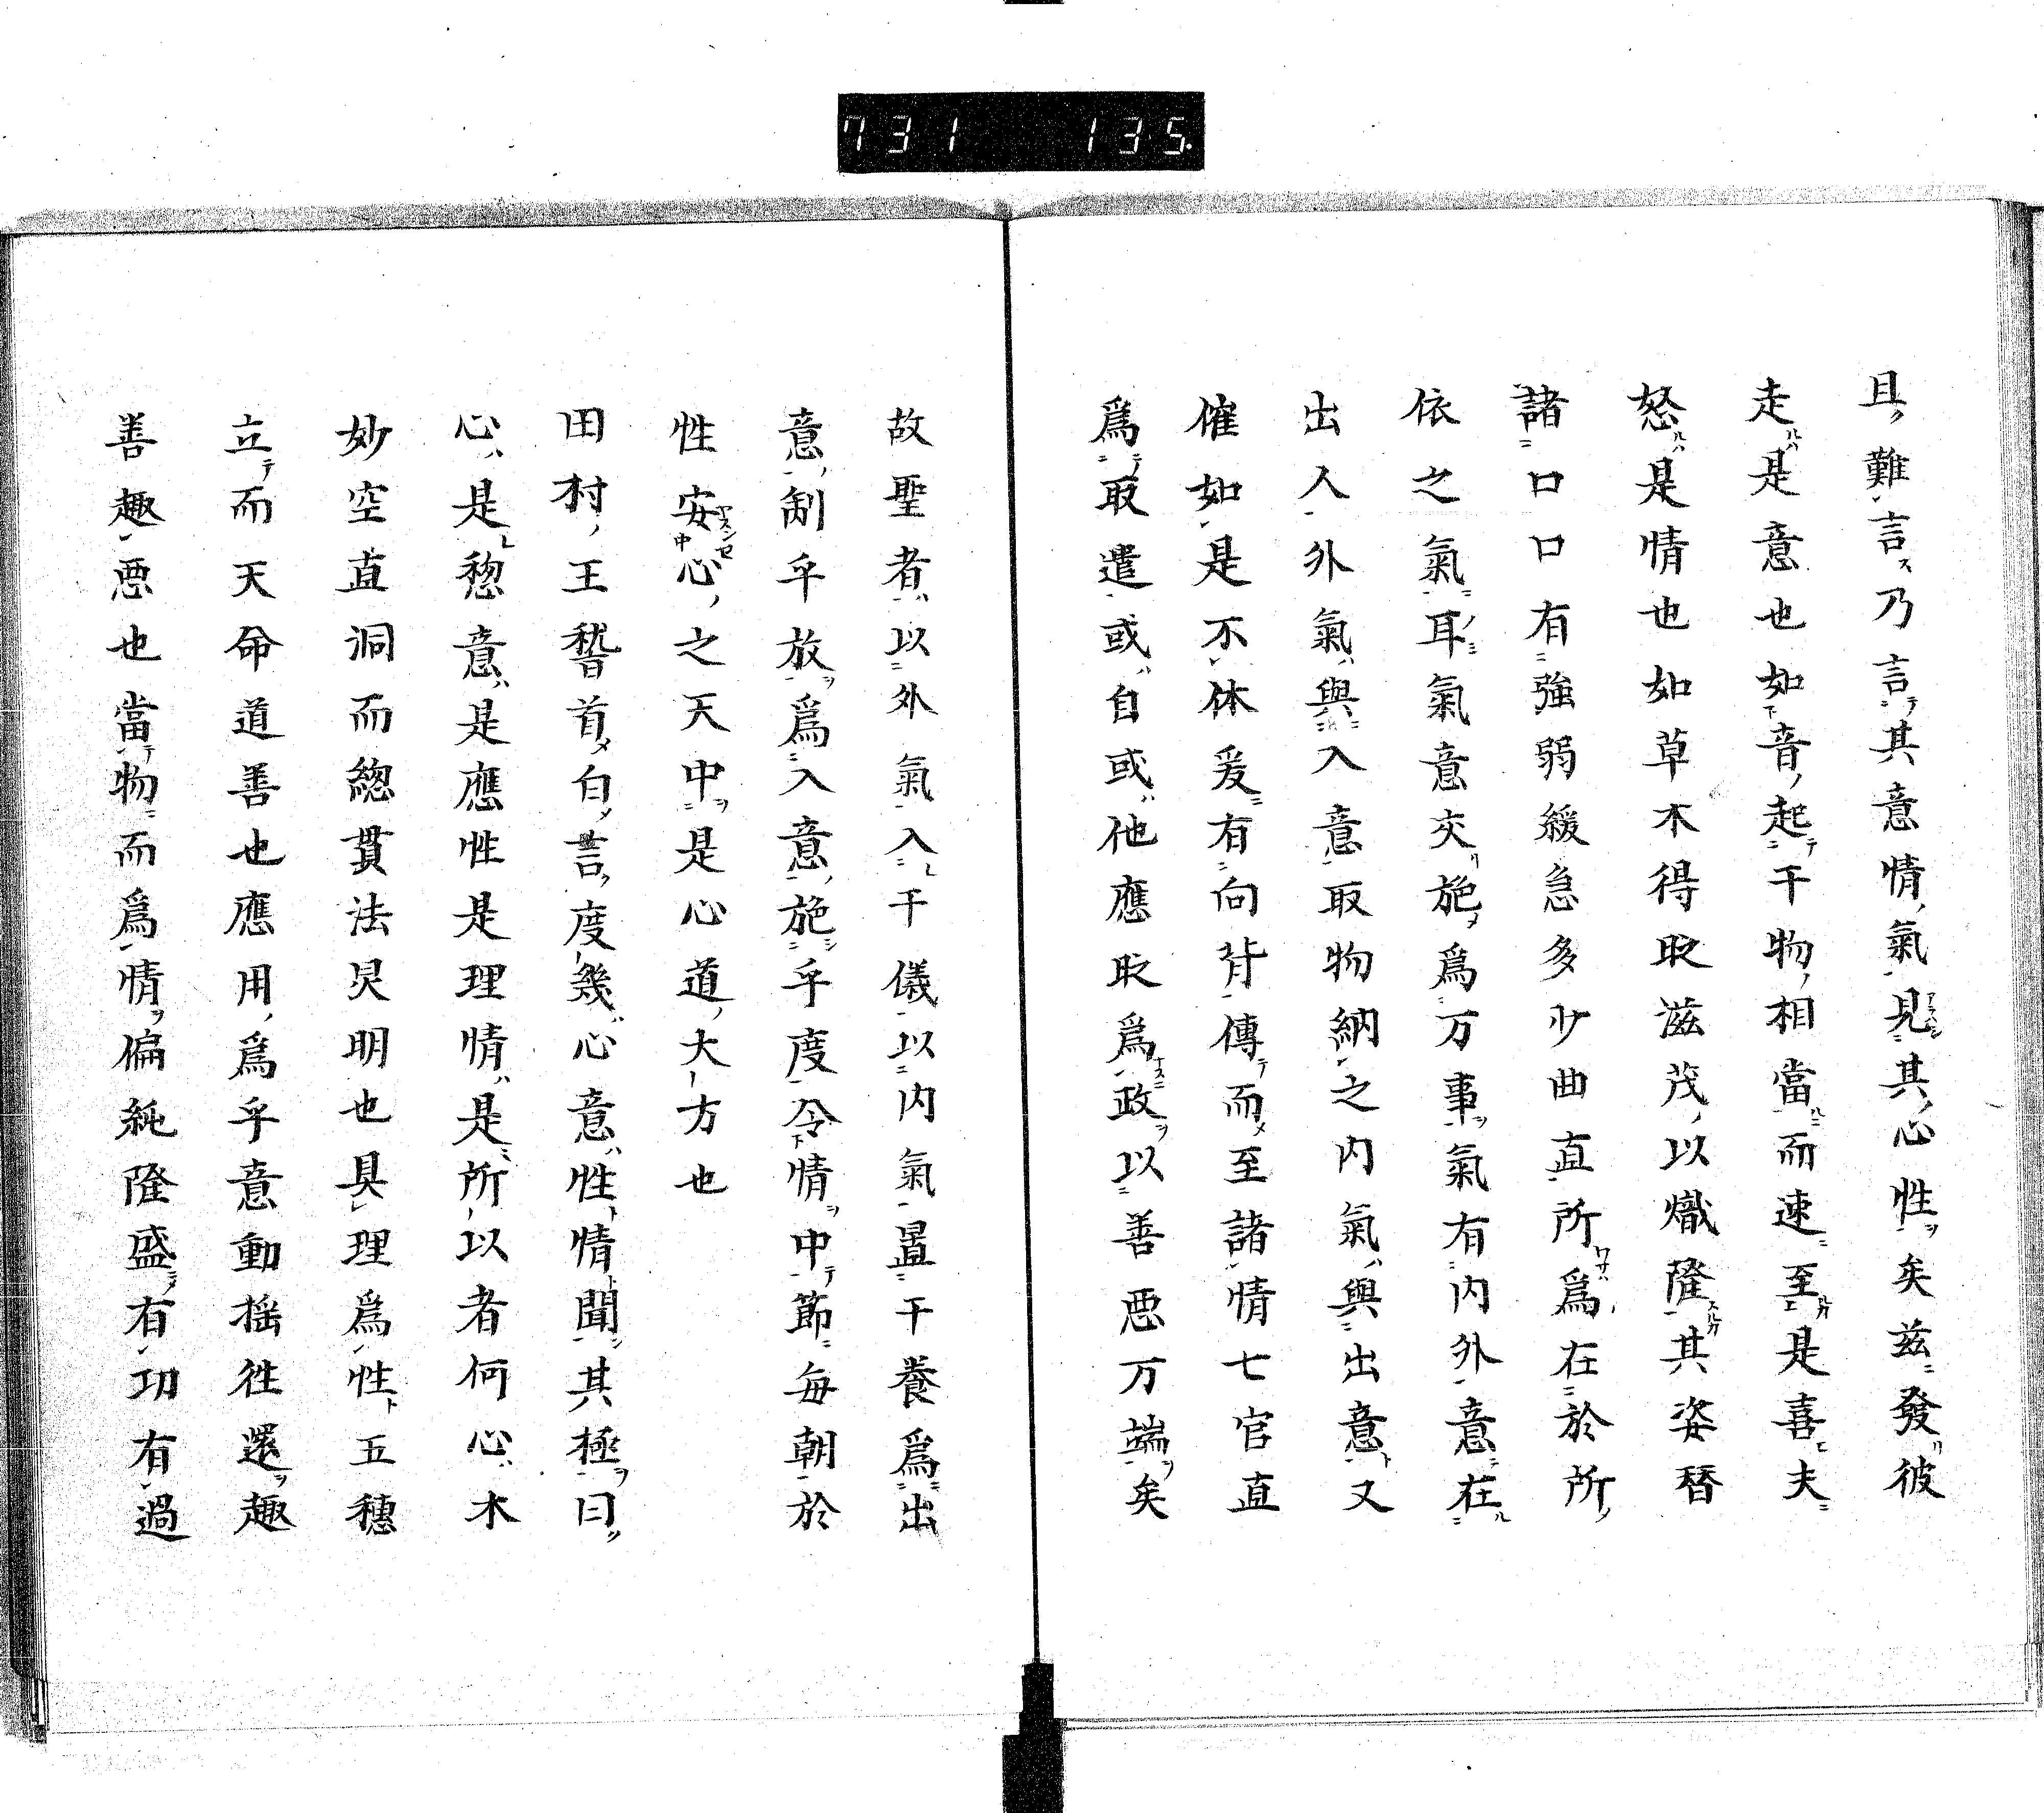 731 135.
且難言乃言其意情氣見其心性矣茲發彼
走是意也如音起于物相當而速至是喜夫
怒是情也如草木得取滋茂以熾隆其姿替
諸口口有強弱緩急多少曲直所爲在於所
依之氣耳氣意交施爲万事氣有内外意在
出入外氣與入意取物納之内氣與出意又
催如是不休爰有向背傳而至諸情七官直
爲取遣或自或他應取爲政以善悪万端矣
故聖者以外氣入于儀以内氣置于養爲出
意制乎放爲入意施乎度令情中節毎朝於
性安心之天中是心道大方也
田村王稽首白言度幾心意性情聞其極曰
心是総意是應性是理情是所以者何心木
妙空直洞而總貫法炅明也具理爲性五穗
立而天命道善也應用爲乎意動揺徃還趣
善趣悪也當物而爲情偏純隆盛有功有過